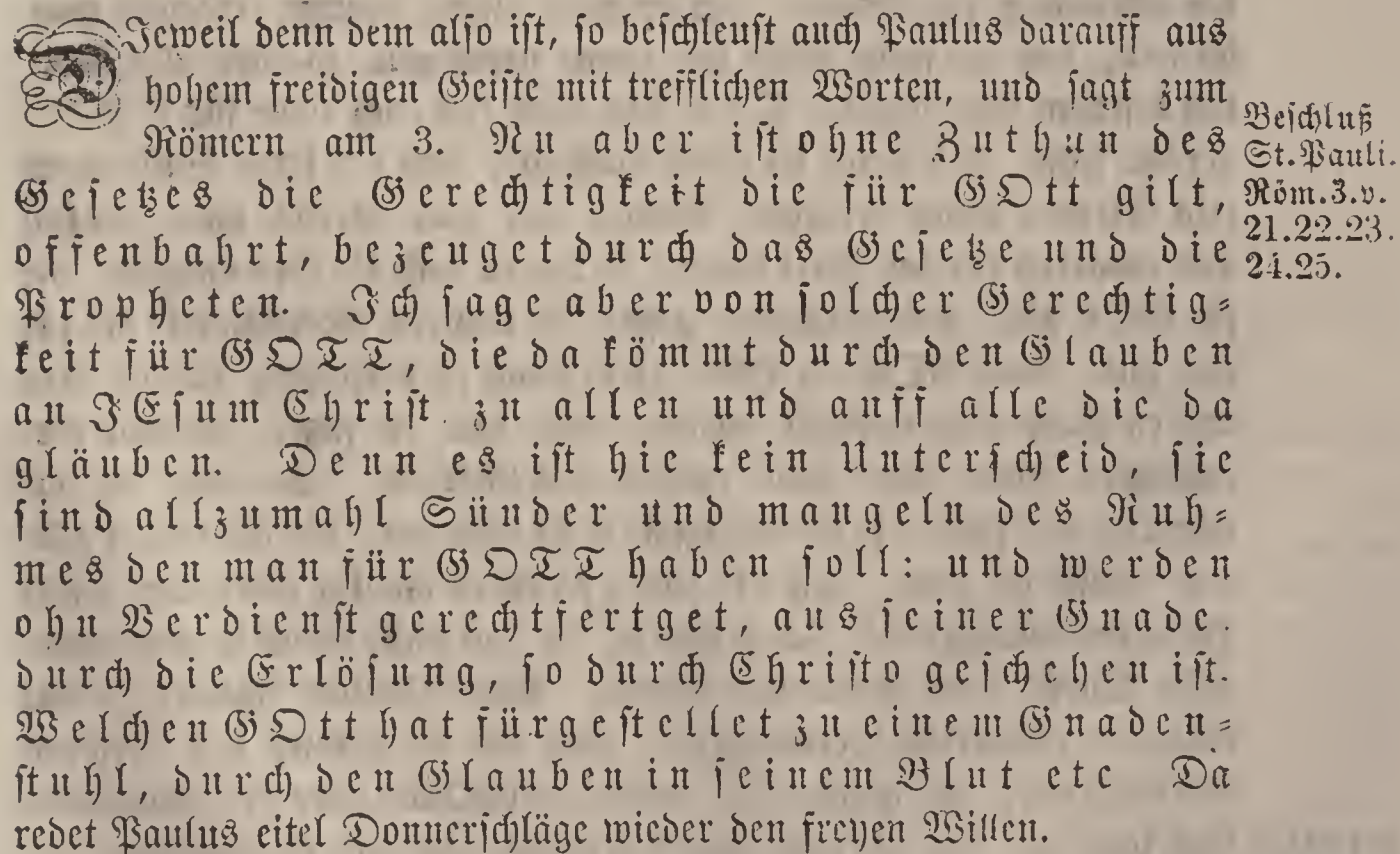 DJeweil denn dem also ist, so beschleust auch Paulus darauff aus
hohem freidigen Geiste mit trefflichen Worten, und sagt zum
Römern am 3. Nu aber ist ohne Zuthun des
Gesetzes die Gerechtigkeit die für GOtt gilt,
offenbahrt, bezeuget durch das Gesetze und die
Propheten. Jch sage aber von solcher Gerechtig-
keit für GOTT, die da kömmt durch den Glauben
an JEsum Christ zu allen und auff alle die da
gläuben. Denn es ist hie kein Unterscheid, sie
sind allzumahl Sünder und mangeln des Ruh-
mes den man für GOTT haben soll: und werden
ohn Verdienst gerechtfertget, aus seiner Gnade.
durch die Erlösung, so durch Christo geschehen ist.
Welchen GOtt hat fürgestellet zu einem Gnaden-
stuhl, durch den Glauben in seinem Blut etc Da
redet Paulus eitel Donnerschläge wieder den freyen Willen.
Beschluß
St. Pauli.
Röm. 3. v.
21.22.23.
24.25.